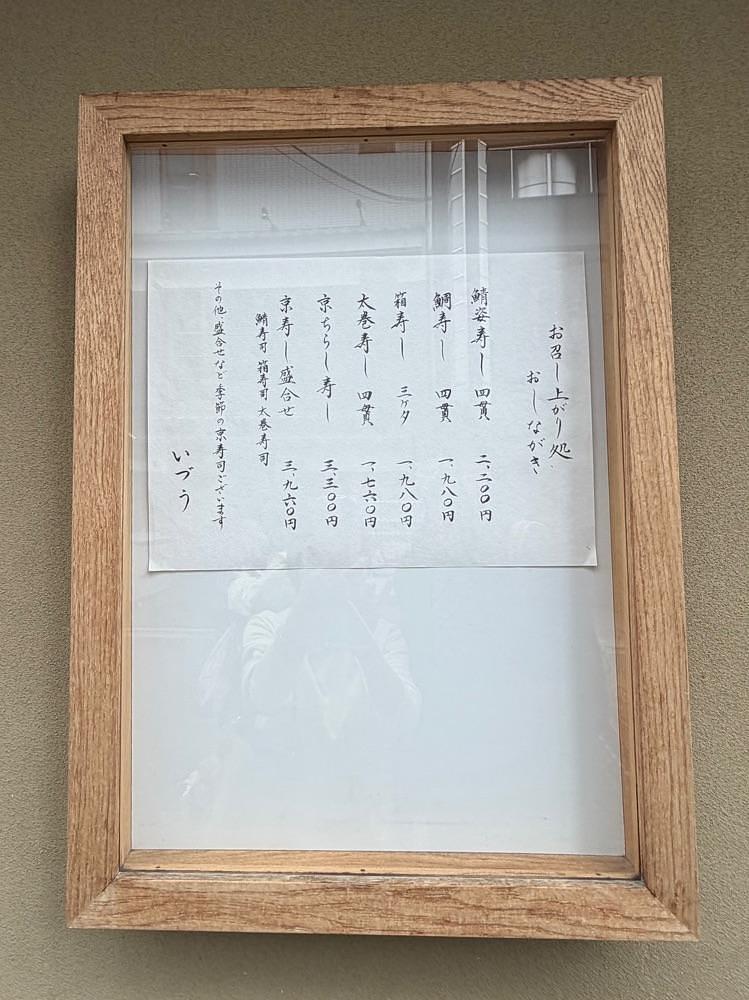 お召し上がり処
おしながき
鯖姿寿し 四貫 二、二〇〇円
鯛寿し 四貫 一、九八〇円
箱寿し 三ケ夕 一、九八〇円
太巻寿し 四貫 一、七六〇円
京ちらし寿し 三、三〇〇円
京寿し盛合せ 三、九六〇円
鯖寿司 箱寿司 太巻寿司
その他、盛合せなど季節の京寿司ございます
いづう